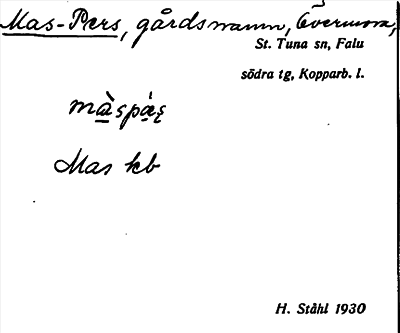 Mas-Pers, gårdsnamn, Övermora,
St. Tuna sn, Falu
södra tg, Kopparb. l.
màspàs
Mas kb
H. Ståhl 1930